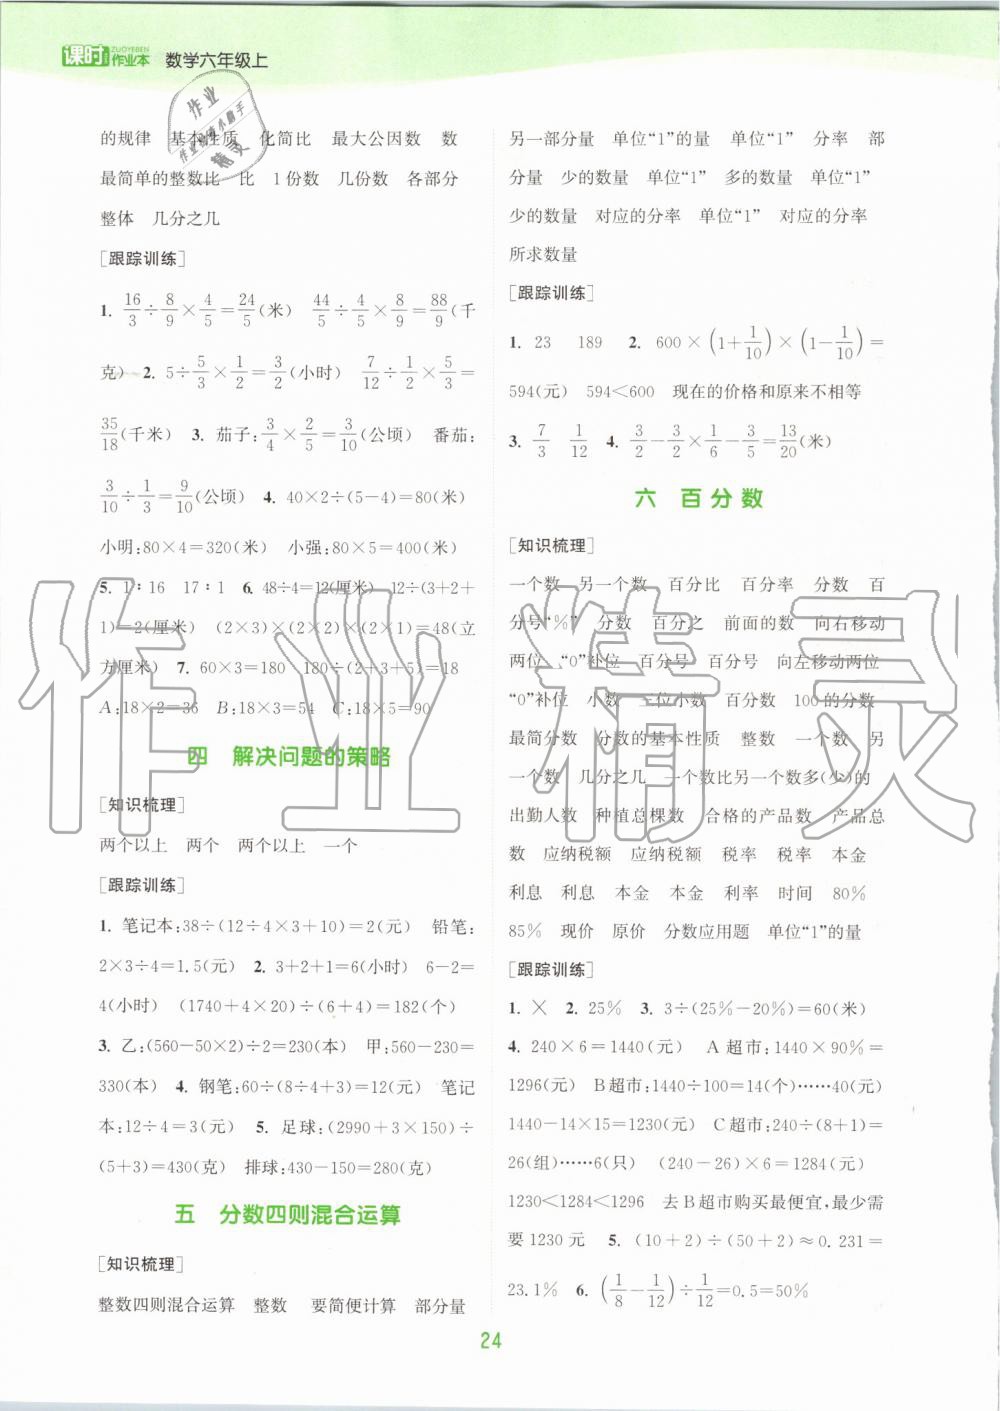 课时作业本 ZUOYEBEN 数学六年级上
的规律 基本性质 化简比 最大公因数 数
最简单的整数比 比 1份数 几份数 各部分
整体 几分之几
[跟踪训练]
1. 16/3÷8/9×4/5=24/5(米) 44/5÷4/5×8/9=88/9(千
克) 2. 5÷5/3×1/2=3/2(小时) 7/12÷1/2×5/3=
35/18(千米) 3. 茄子:3/4×2/5=3/10(公顷) 番茄:
3/10÷1/3=9/10(公顷) 4. 40×2÷(5-4)=80(米)
小明:80×4=320(米) 小强:80×5=400(米)
5. 1∶16 17∶1 6. 48÷4=12(厘米) 12÷(3+2+
1)=2(厘米) (2×3)×(2×2)×(2×1)=48(立
方厘米) 7. 60×3=180 180÷(2+3+5)=18
A:18×2=36 B:18×3=54 C:18×5=90
四 解决问题的策略
[知识梳理]
两个以上 两个 两个以上 一个
[跟踪训练]
1. 笔记本:38÷(12÷4×3+10)=2(元) 铅笔:
2×3÷4=1.5(元) 2. 3+2+1=6(小时) 6-2=
4(小时) (1740+4×20)÷(6+4)=182(个)
3. 乙:(560-50×2)÷2=230(本) 甲:560-230=
330(本) 4. 钢笔:60÷(8÷4+3)=12(元) 笔记
本:12÷4=3(元) 5. 足球:(2990+3×150)÷
(5+3)=430(克) 排球:430-150=280(克)
五 分数四则混合运算
[知识梳理]
整数四则混合运算 整数 要简便计算 部分量
另一部分量 单位“1”的量 单位“1” 分率 部
分量 少的数量 单位“1” 多的数量 单位“1”
少的数量 对应的分率 单位“1” 对应的分率
所求数量
[跟踪训练]
1. 23 189 2. 600×(1+1/10)×(1-1/10)=
594(元) 594<600 现在的价格和原来不相等
3. 7/3 1/12 4. 3/2-3/2×1/6-3/5=13/20(米)
六 百分数
[知识梳理]
一个数 另一个数 百分比 百分率 分数 百
分号“%” 分数 百分之 前面的数 向右移动
两位 “0”补位 百分号 百分数 向左移动两位
“0”补位 小数 三位小数 百分数 100的分数
最简分数 分数的基本性质 整数 一个数 另
一个数 几分之几 一个数比另一个数多(少)的
出勤人数 种植总棵数 合格的产品数 产品总
数 应纳税额 应纳税额 税率 税率 本金
利息 利息 本金 本金 利率 时间 80%
85% 现价 原价 分数应用题 单位“1”的量
[跟踪训练]
1. × 2. 25% 3. 3÷(25%-20%)=60(米)
4. 240×6=1440(元) A超市:1440×90%=
1296(元) B超市:1440÷100=14(个)……40(元)
1440-14×15=1230(元) C超市:240÷(8+1)=
26(组)……6(只) (240-26)×6=1284(元)
1230<1284<1296 去B超市购买最便宜,最少需
要1230元 5. (10+2)÷(50+2)≈0.231=
23.1% 6. (1/8-1/12)÷1/12=0.5=50%
24
作业精灵